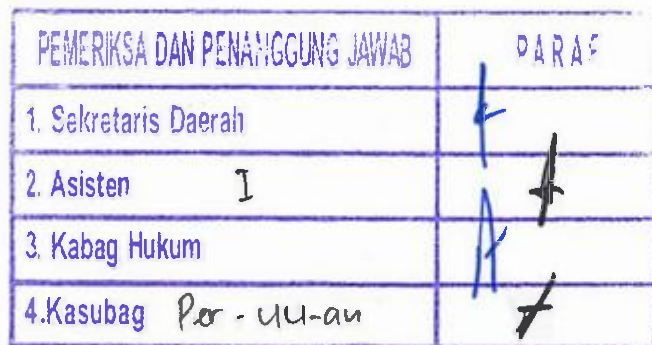 PEMERIKSA DAN PENANGGUNG JAWAB PARAF
1. Sekretaris Daerah
2. Asisten I
3. Kabag Hukum
4.Kasubag Per-UU-an